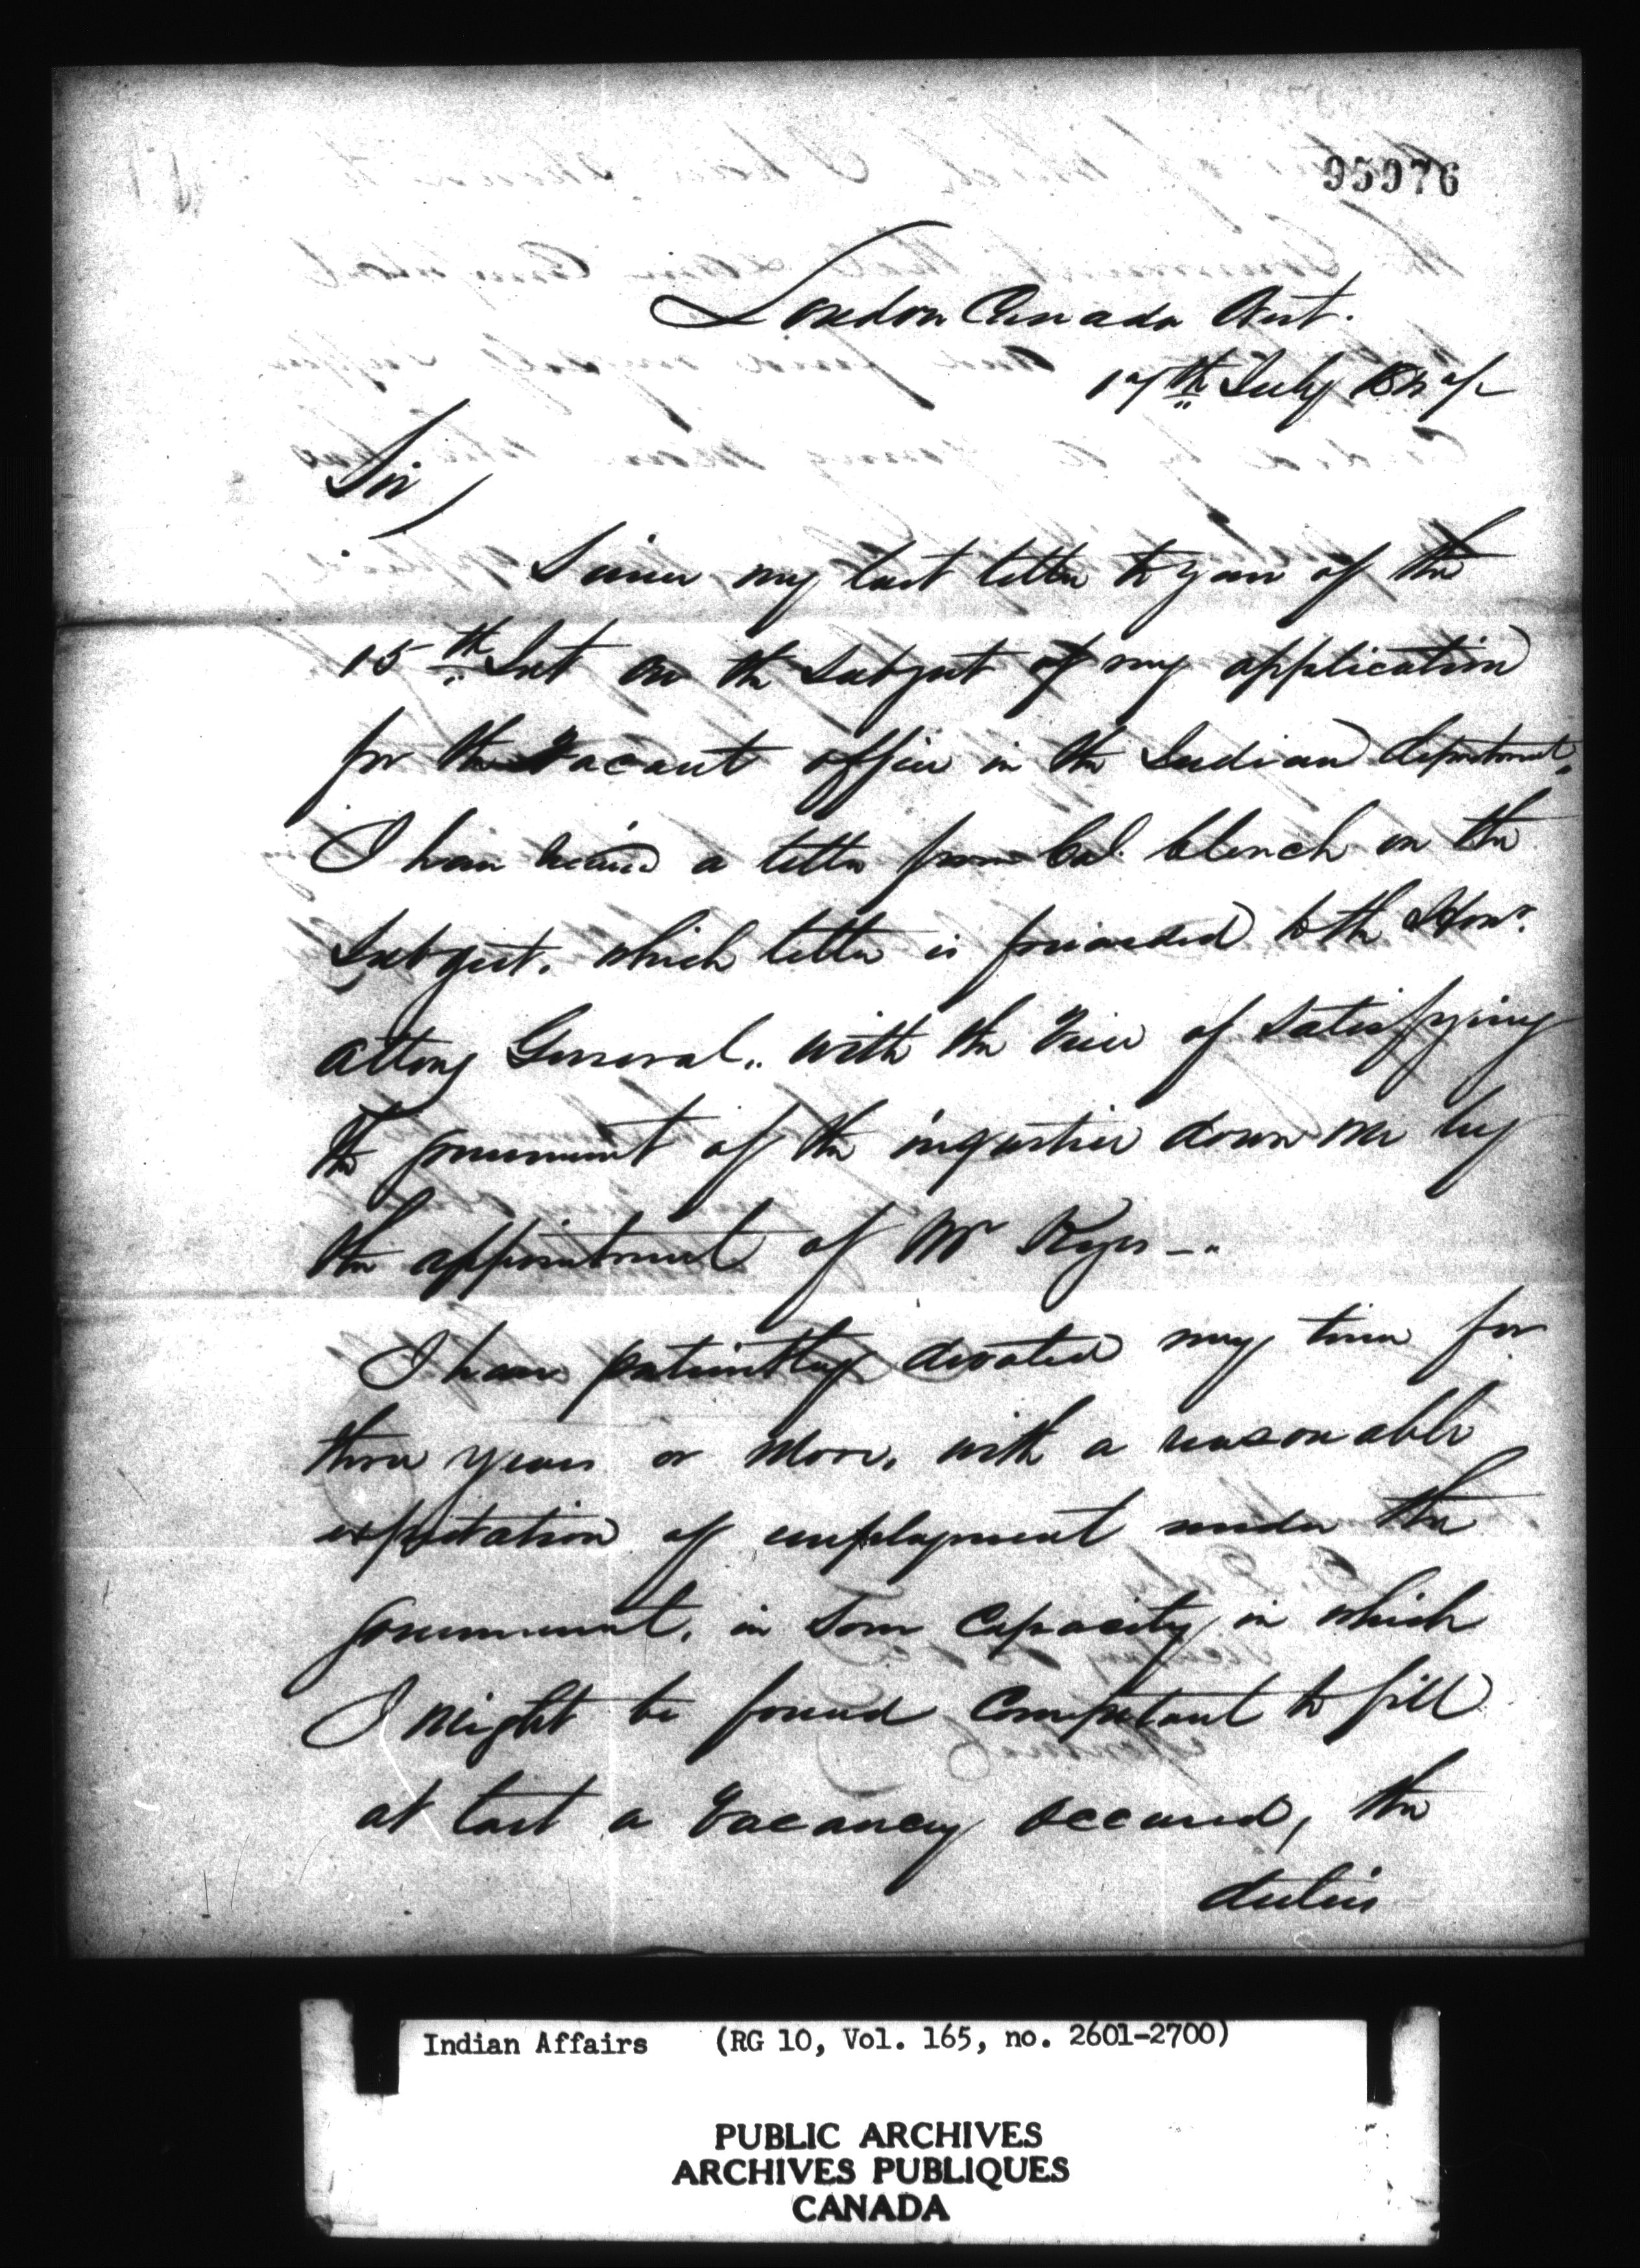 95976
London Canada West.
17th July 1847
Sir
Since my last letter to you of the
15th Inst on the Subject of my application
for the Vacant office in the Indian department.
I have received a letter from Col. Clench on the
Subject. which letter is forwarded to the Honr.
Attony General. with the View of Satisfying
the government of the injustice down me by
the appointment of Mr Keyes —
I have patiently devoted my time for
three years or More. with a reasonable
expectation of employment under the
government. in Some Capacity in which
I Might be found Competant to fill
at last a Vacancy occured, the
duties
Indian Affairs (RG 10, Vol. 165, no. 2601-2700)
PUBLIC ARCHIVES
ARCHIVES PUBLIQUES
CANADA